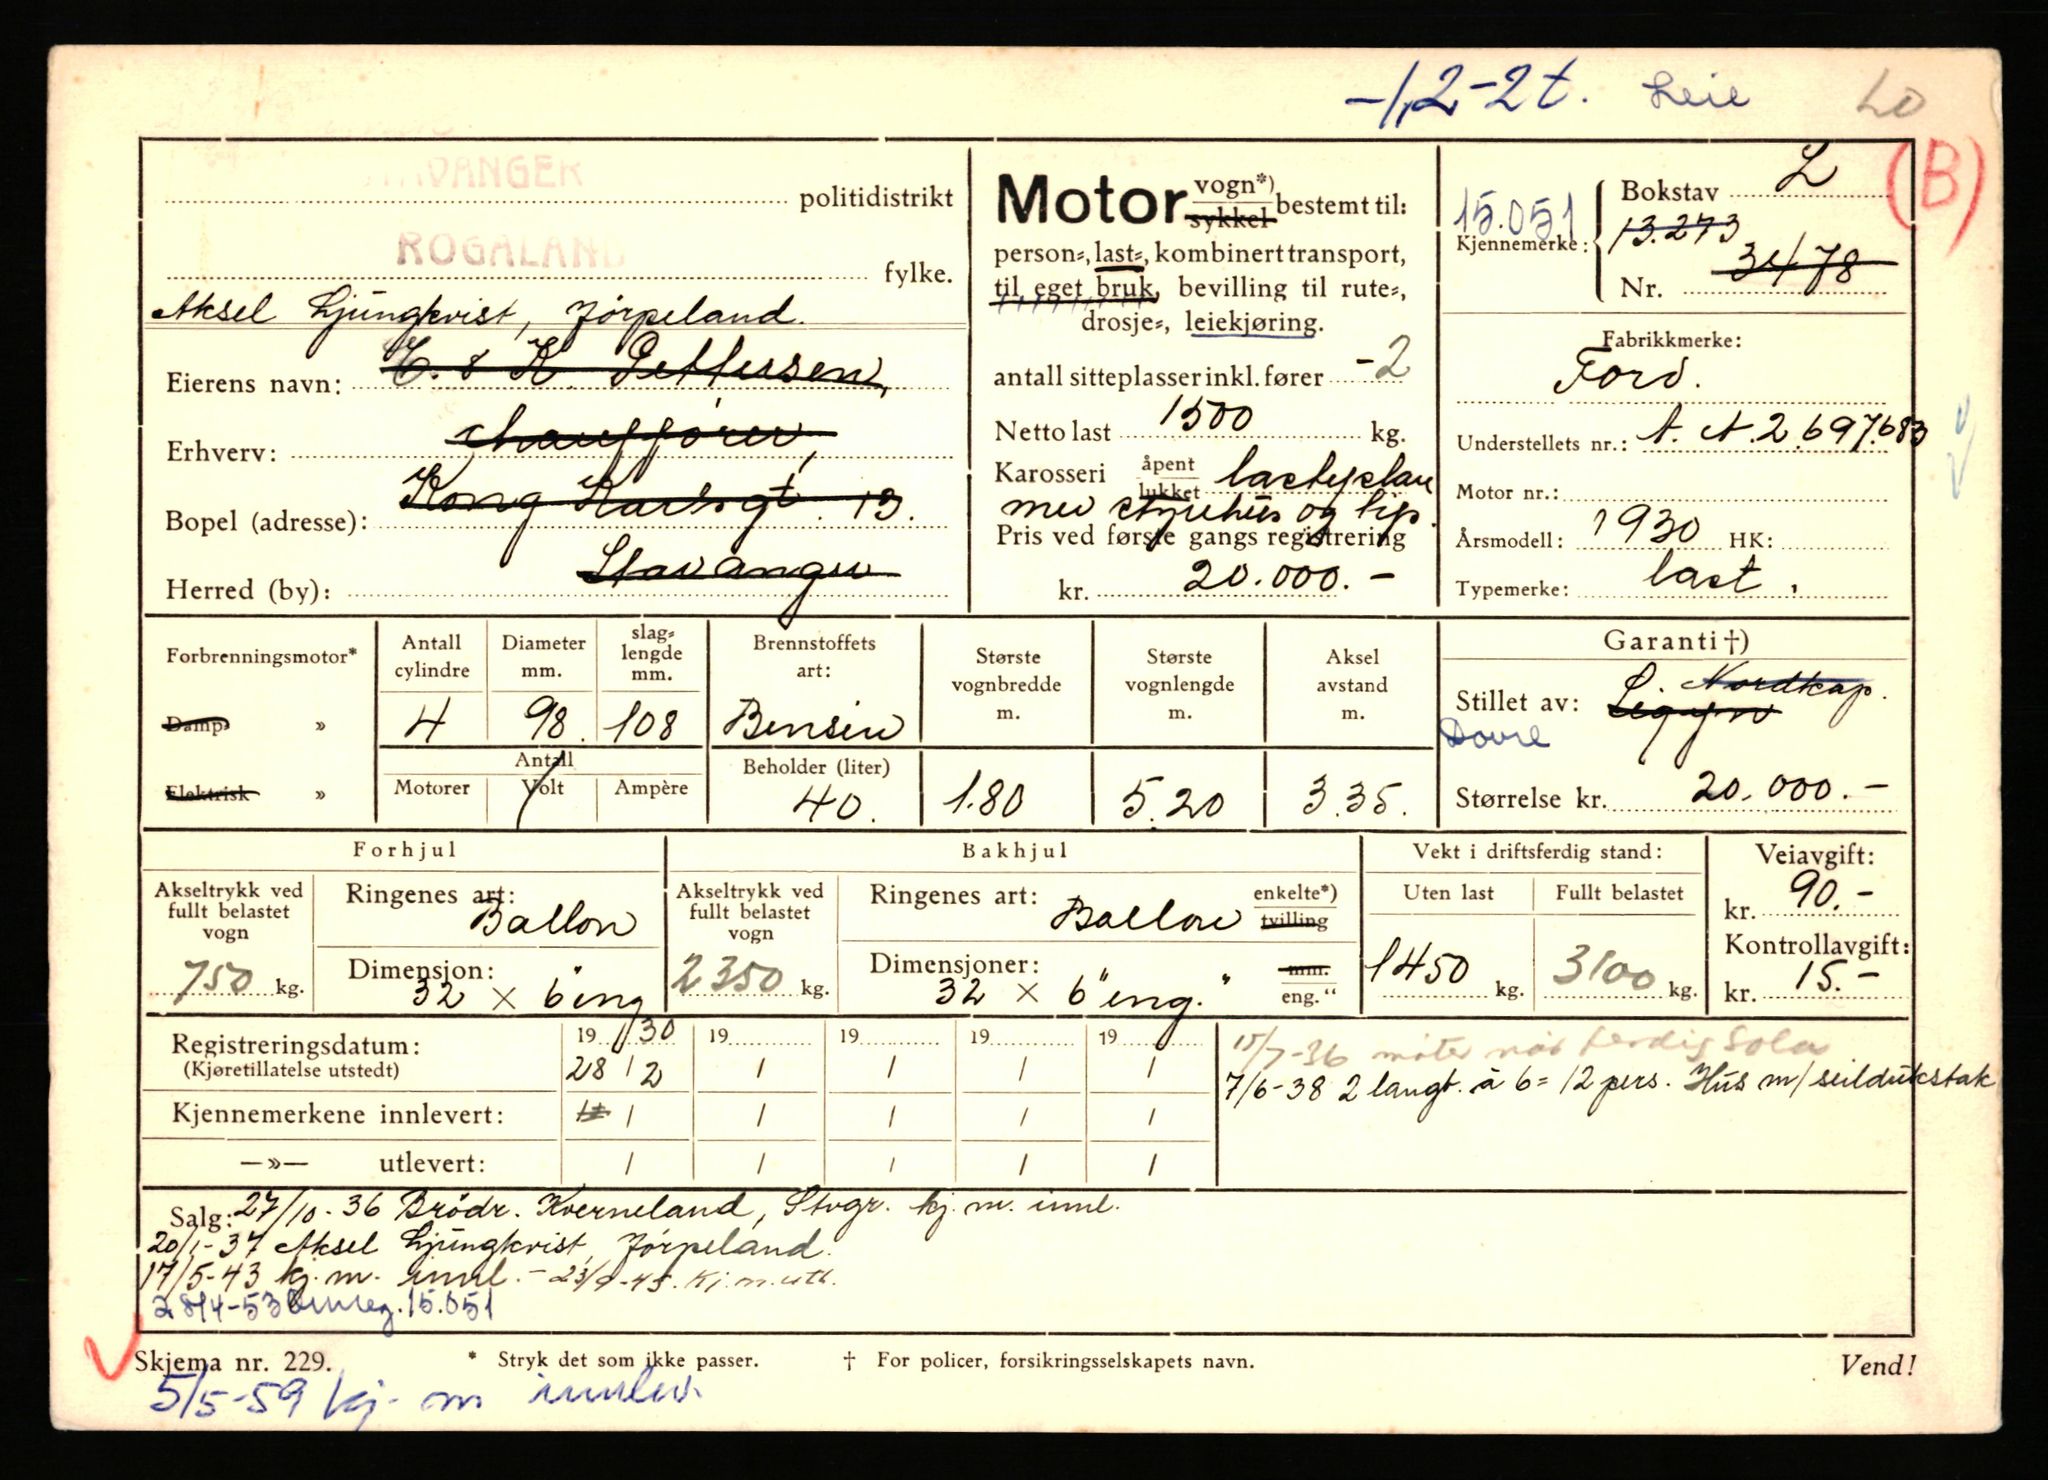 -1,2-2t. Leie LO
STAVANGER politidistrikt
ROGALAND fylke.
Aksel Ljungkvist, Jørpeland.
Eierens navn: E. & K. Pettersen,
Erhverv: chauffører,
Bopel (adresse): Kong Karlsgt. 13.
Herred (by): Stavanger
Motor vogn*) sykkel bestemt til:
person=, last=, kombinert transport,
til eget bruk, bevilling til rute=,
drosje=, leiekjøring.
antall sitteplasser inkl. fører -2
Netto last 1500 kg.
Karosseri åpent lukket lasteplan
med styrehus og tip.
Pris ved første gangs registrering
kr. 20.000.-
Bokstav L (B)
15.051 13.273
Kjennemerke: Nr. 3478
Fabrikkmerke:
Ford.
Understellets nr.: A. A. 2.697.683
Motor nr.:
Årsmodell: 1930 HK:
Typemerke: last.
Forbrenningsmotor*
Damp »
Elektrisk »
Antall cylindre
4
Diameter mm.
98.
slag=lengde mm.
108
Antall
Motorer Volt Ampère
Brennstoffets art:
Bensin
Beholder (liter)
40.
Største vognbredde m.
1.80
Største vognlengde m.
5.20
Aksel avstand m.
3.35.
Garanti †)
Stillet av: L. Nordkap.
Dovre
Størrelse kr. 20.000.-
Forhjul
Akseltrykk ved
fullt belastet
vogn
750 kg.
Ringenes art:
Ballon
Dimensjon:
32 x 6" eng
Bakhjul
Akseltrykk ved
fullt belastet
vogn
2350 kg.
Ringenes art: enkelte*)
Ballon tvilling
Dimensjoner: mm.
32 x 6" eng." eng."
Vekt i driftsferdig stand:
Uten last Fullt belastet
1450 kg. 3100 kg.
Veiavgift:
kr. 90.-
Kontrollavgift:
kr. 15.-
19 30 19 19 19 19
Registreringsdatum:
(Kjøretillatelse utstedt) 28/2 / / / /
Kjennemerkene innlevert: / / / / /
—»— utlevert: / / / / /
15/7-36 møter når ferdig Sola
7/6-38 2 langt. à 6 = 12 pers. Hus m/ seildukstak
Salg: 27/10-36 Brødr. Kverneland, Stvgr. kj. m. innl.
20/1-37 Aksel Ljungkvist, Jørpeland.
17/5-43 kj. m. innl. - 23/9-45. kj. m. utl.
28/4-53 omreg. 15.051
Skjema nr. 229. * Stryk det som ikke passer. † For policer, forsikringsselskapets navn. Vend!
5/5-59 kj. m innlev.